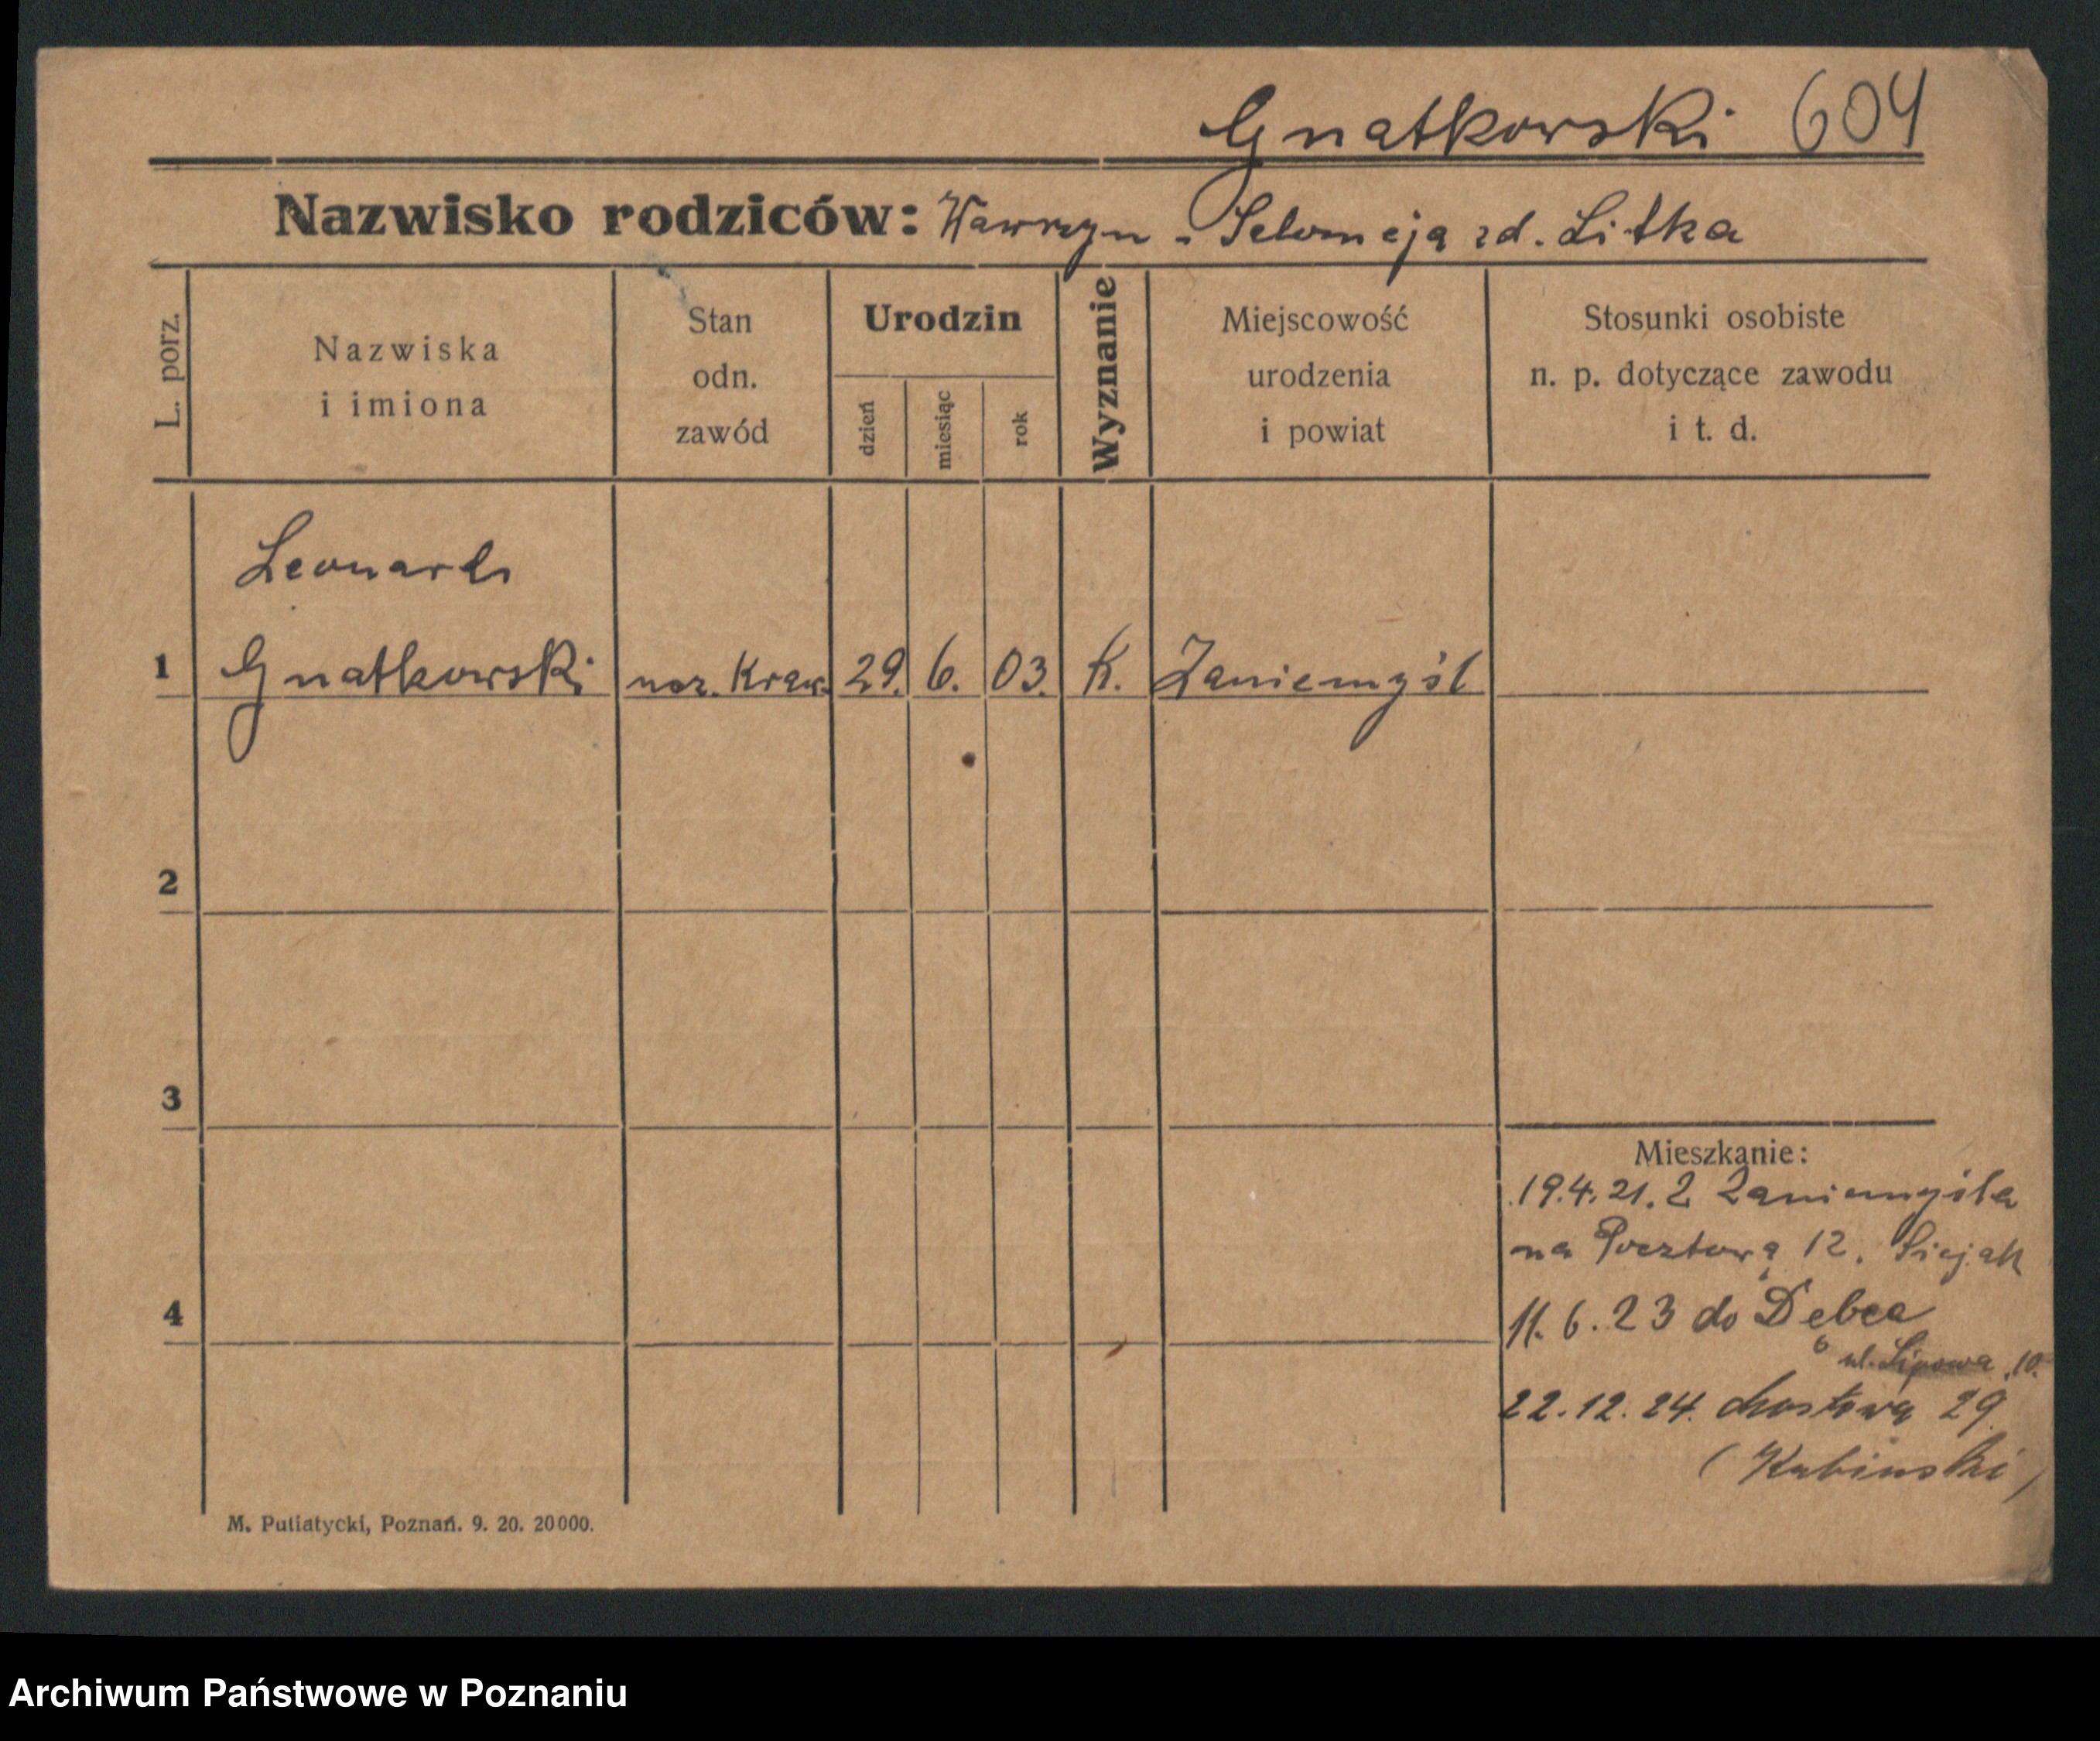 Gnatkowski 604
Nazwisko rodziców: Wawrzyn - Salomeja zd. Litka
L. porz.
Nazwiska
i imiona
Stan
odn.
zawód
Urodzin
dzień
miesiąc
rok
Wyznanie
Miejscowość
urodzenia
i powiat
Stosunki osobiste
n. p. dotyczące zawodu
i t. d.
Leonard
1 Gnatkowski ucz. Kraw. 29. 6. 03. K. Zaniemyśl
2
3
4
Mieszkanie:
19.4.21. Z Zaniemyśla
na Pocztową 12.
11.6.23 do Dębca
ul. Lipowa 10.
22.12.24. Mostowa 29.
(Kubinski)
M. Putiatycki, Poznań. 9. 20. 20000.
Archiwum Państwowe w Poznaniu